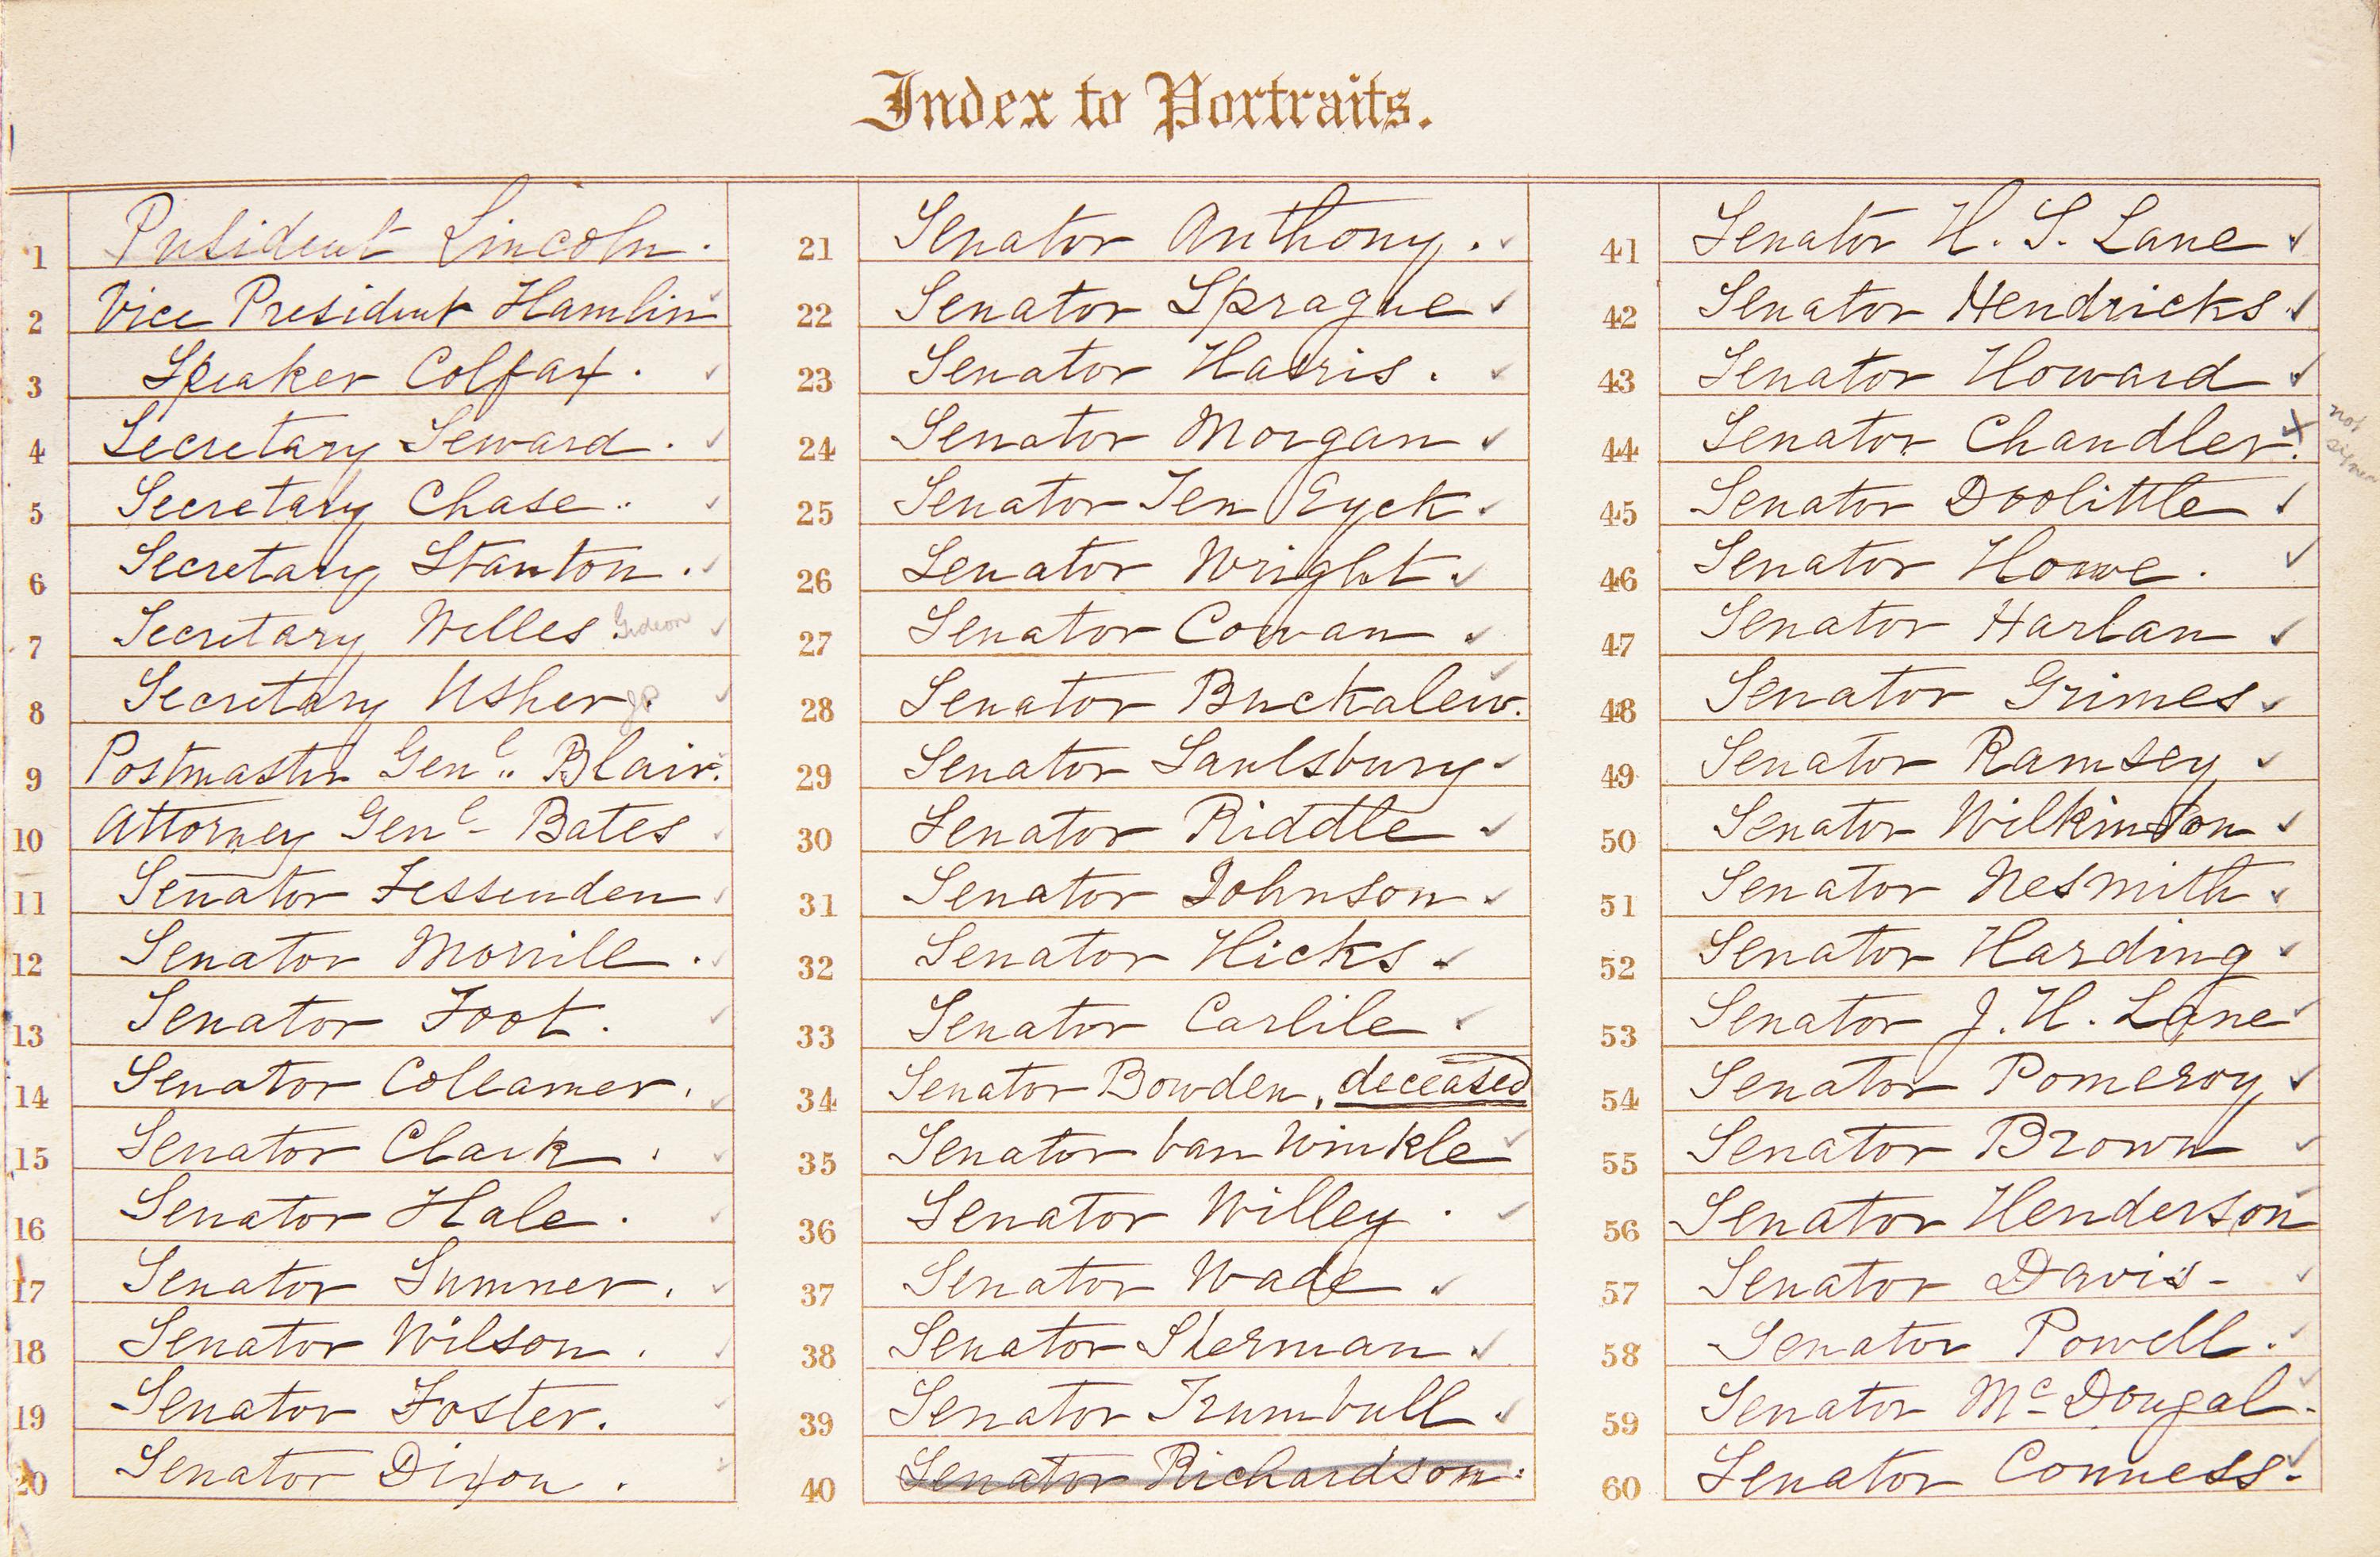 Index to Portraits.
1 President Lincoln.
2 Vice President Hamlin
3 Speaker Colfax.
4 Secretary Seward.
5 Secretary Chase.
6 Secretary Stanton.
7 Secretary Welles. Gideon
8 Secretary Usher. JP
9 Postmaster Genl. Blair.
10 Attorney Genl- Bates
11 Senator Fessenden
12 Senator Morrill.
13 Senator Foot.
14 Senator Collamer.
15 Senator Clark.
16 Senator Hale.
17 Senator Sumner.
18 Senator Wilson.
19 Senator Foster.
20 Senator Dixon.
21 Senator Anthony.
22 Senator Sprague
23 Senator Harris.
24 Senator Morgan
25 Senator Ten Eyck
26 Senator Wright.
27 Senator Cowan
28 Senator Buckalew.
29 Senator Saulsbury
30 Senator Riddle
31 Senator Johnson
32 Senator Hicks.
33 Senator Carlile
34 Senator Bowden, deceased
35 Senator Van Winkle
36 Senator Willey.
37 Senator Wade
38 Senator Sherman
39 Senator Trumbull
40 Senator Richardson.
41 Senator H. S. Lane
42 Senator Hendricks
43 Senator Howard
44 Senator Chandler. not signed
45 Senator Doolittle
46 Senator Howe.
47 Senator Harlan
48 Senator Grimes
49 Senator Ramsey
50 Senator Wilkinson
51 Senator Nesmith
52 Senator Harding
53 Senator J. H. Lane
54 Senator Pomeroy
55 Senator Brown
56 Senator Henderson
57 Senator Davis-
58 Senator Powell.
59 Senator McDougal.
60 Senator Conness-